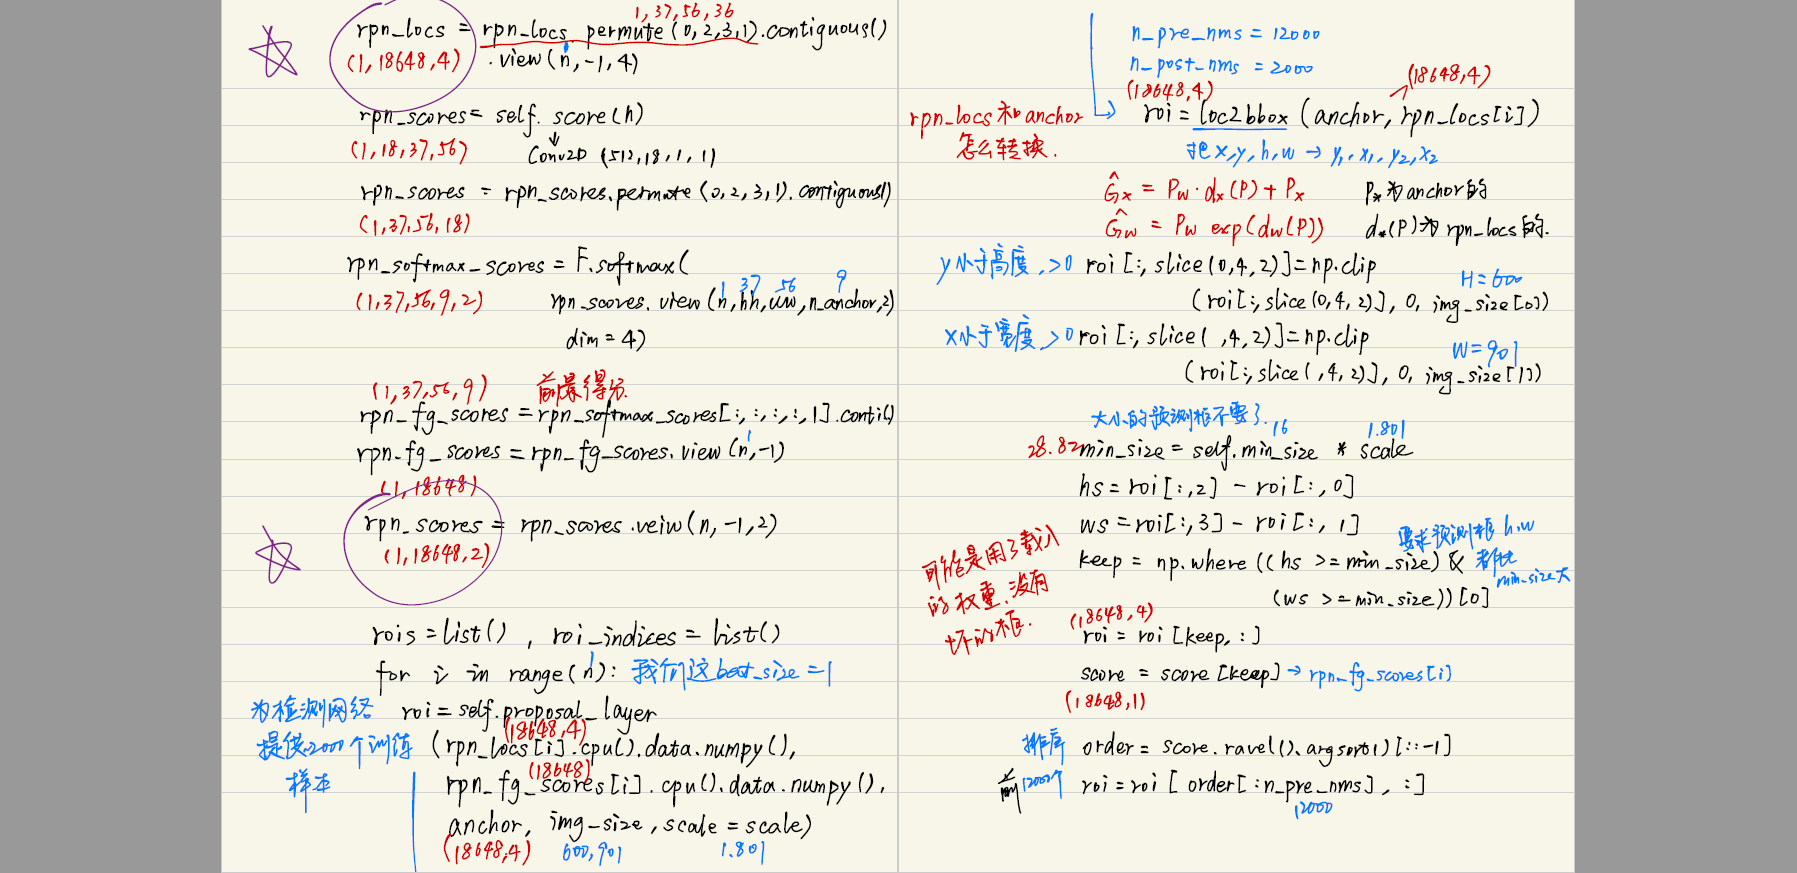 1,37,56,36
rpn_locs = rpn_locs.permute(0,2,3,1).contiguous()
(1,18648,4) .view(n,-1,4)
rpn_scores = self.score(h)
(1,18,37,56) Conv2D (512,18,1,1)
rpn_scores = rpn_scores.permute(0,2,3,1).contiguous()
(1,37,56,18)
rpn_softmax_scores = F.softmax(
1 37 56 9
(1,37,56,9,2) rpn_scores.view(n,hh,ww,n_anchor,2)
dim=4)
(1,37,56,9) 前景得分
rpn_fg_scores = rpn_softmax_scores[:,:,:,:,1].conti()
1
rpn_fg_scores = rpn_fg_scores.view(n,-1)
(1,18648)
rpn_scores = rpn_scores.veiw(n,-1,2)
(1,18648,2)
rois = list() , roi_indices = list()
for i in range(n): 我们这bat_size=1
1
为检测网络 roi = self.proposal_layer
(18648,4)
提供2000个训练 (rpn_locs[i].cpu().data.numpy(),
(18648)
样本 rpn_fg_scores[i].cpu().data.numpy(),
anchor, img_size, scale=scale)
(18648,4) 600,901 1.801
n_pre_nms = 12000
n_post_nms = 2000
(18648,4) (18648,4)
rpn_locs和anchor roi = loc2bbox (anchor, rpn_locs[i])
怎么转换. 把x,y,h,w → y₁,x₁,y₂,x₂
Ĝx = Pw·dx(P)+Px P*为anchor的
Ĝw = Pw exp(dw(P)) d*(P)为rpn_locs的.
y小于高度,>0 roi[:,slice(0,4,2)]=np.clip
H=600
(roi[:,slice(0,4,2)], 0, img_size[0])
x小于宽度,>0 roi[:,slice(1,4,2)]=np.clip
W=901
(roi[:,slice(1,4,2)], 0, img_size[1])
太小的预测框不要了.
16 1.801
28.82 min_size = self.min_size * scale
hs = roi[:,2] - roi[:,0]
ws = roi[:,3] - roi[:,1]
要求预测框h,w
都比
min_size大
keep = np.where((hs >= min_size) &
(ws >= min_size))[0]
可能是用了载入
的权重,没有
坏的框.
(18648,4)
roi = roi[keep,:]
score = score[keep] → rpn_fg_scores[i]
(18648,1)
排序 order = score.ravel().argsort()[::-1]
前12000个 roi = roi[order[:n_pre_nms],:]
12000